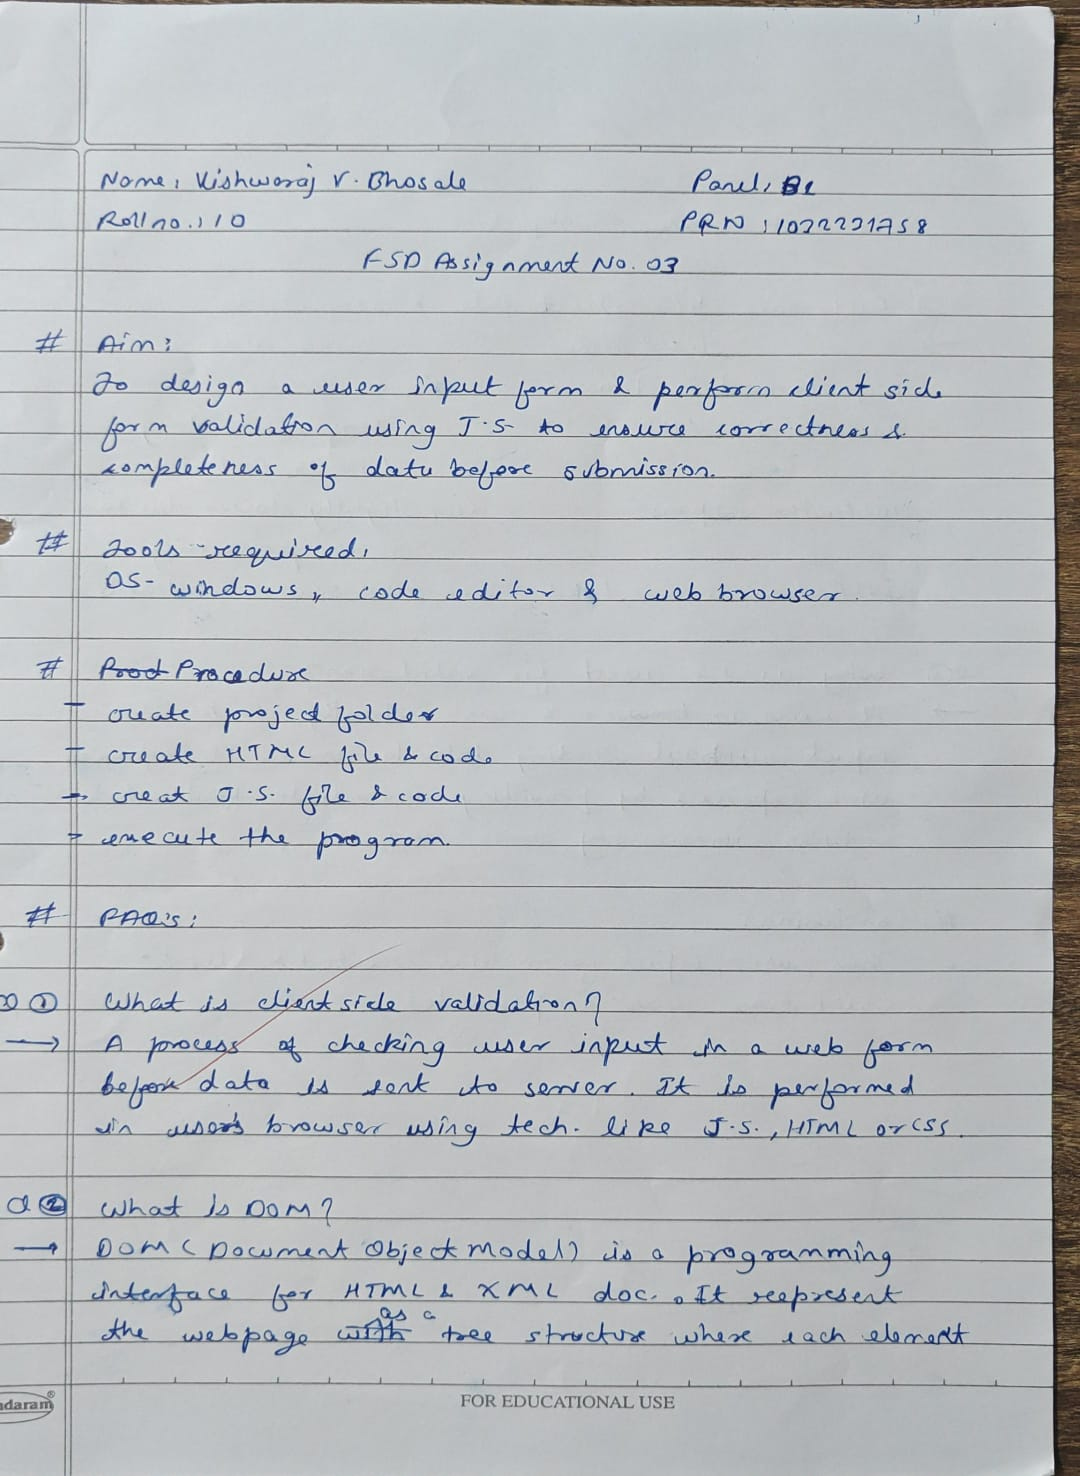 Name: Vishwaraj V. Bhosale Panel: B1
Roll no.: 10 PRN: 1032221758
FSD Assignment No. 03
# Aim:
To design a user input form & perform client side
form validation using J.S. to ensure correctness &
completeness of data before submission.
# Tools required:
OS- windows, code editor & web browser.
# Prod Procedure
- create project folder
- create HTML file & code
→ creat J.S. file & code
- execute the program.
# FAQ's:
Q ① What is client side validation?
→ A process of checking user input in a web form
before data is sent to server. It is performed
in users browser using tech. like J.S., HTML or CSS.
Q ② What is DOM?
→ DOM (Document Object Model) is a programming
interface for HTML & XML doc. It reepresent
as a
the webpage with tree structure where each element
ndaram®
FOR EDUCATIONAL USE